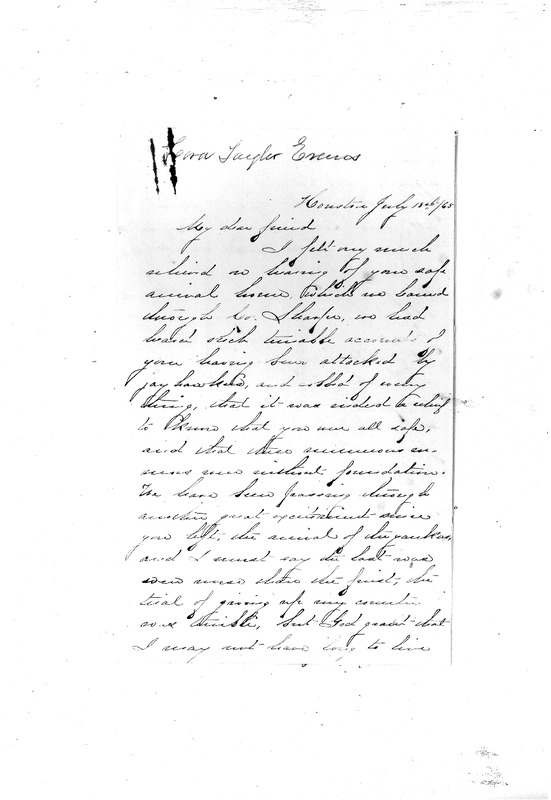 Taylor Evans
Houston July 18th/65
My dear friend
I felt very much
relieved on hearing of your safe
arrival home, which we learned
through Co. Sharpe, we had
heard such terrible accounts of
your having been attacked by
jayhawkers, and robbed of every
thing, that it was indeed a relief
to know that you were all safe,
and that these numerous ru-
mors were without foundation.
We have been passing through
another great excitement since
you left, the arrival of the yankees,
and I must say the last was
even worse than the first, the
trial of giving up my country
was terrible, but God grant that
I may not have long to live